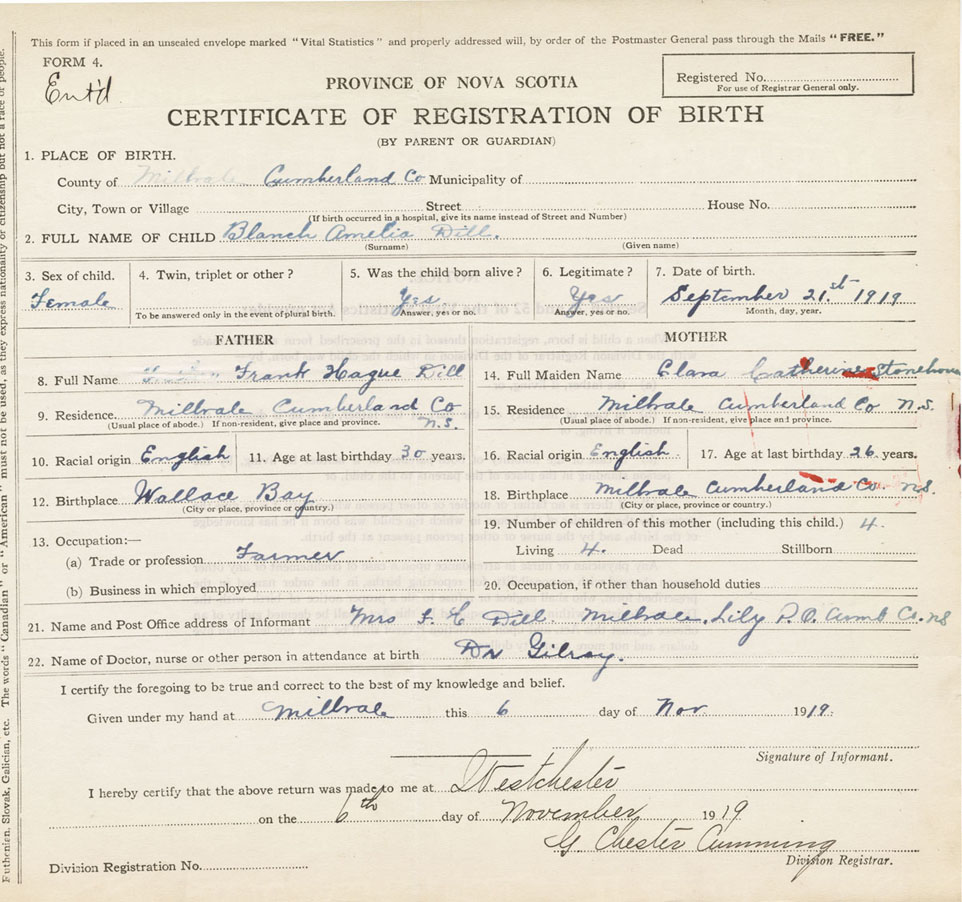 This form if placed in an unsealed envelope marked "Vital Statistics" and properly addressed will, by order of the Postmaster General pass through the Mails "FREE."
FORM 4.
Ent'd
PROVINCE OF NOVA SCOTIA
Registered No.
For use of Registrar General only.
CERTIFICATE OF REGISTRATION OF BIRTH
(BY PARENT OR GUARDIAN)
1. PLACE OF BIRTH.
County of Millvale Cumberland Co Municipality of
City, Town or Village Street House No.
(If birth occurred in a hospital, give its name instead of Street and Number)
2. FULL NAME OF CHILD Blanch Amelia Dill.
(Surname) (Given name)
3. Sex of child. 4. Twin, triplet or other? 5. Was the child born alive? 6. Legitimate? 7. Date of birth.
Female Yes Yes September 21.st 1919
To be answered only in the event of plural birth. Answer, yes or no. Answer, yes or no. Month, day, year.
FATHER MOTHER
8. Full Name Frank Hague Dill 14. Full Maiden Name Clara Catherine Stonehouse
9. Residence Millvale Cumberland Co N.S. 15. Residence Millvale Cumberland Co N.S.
(Usual place of abode.) If non-resident, give place and province. (Usual place of abode.) If non-resident, give place and province.
10. Racial origin English 11. Age at last birthday 30 years. 16. Racial origin English. 17. Age at last birthday 26 years.
12. Birthplace Wallace Bay 18. Birthplace Millvale Cumberland Co. N.S.
(City or place, province or country.) (City or place, province or country.)
19. Number of children of this mother (including this child.) 4.
13. Occupation:—
Living 4. Dead Stillborn
(a) Trade or profession Farmer
20. Occupation, if other than household duties
(b) Business in which employed
21. Name and Post Office address of Informant Mrs F. H. Dill. Millvale, Lily P.O. Cumb Co. NS
22. Name of Doctor, nurse or other person in attendance at birth Dr Gilroy.
I certify the foregoing to be true and correct to the best of my knowledge and belief.
Given under my hand at Millvale this 6 day of Nov. 1919.
Signature of Informant.
I hereby certify that the above return was made to me at Westchester
on the 6th day of November 1919
G. Chester Cumming
Division Registrar.
Division Registration No.
Ruthenian, Slovak, Galician, etc. The words "Canadian" or "American" must not be used, as they express nationality or citizenship but not a race or people.